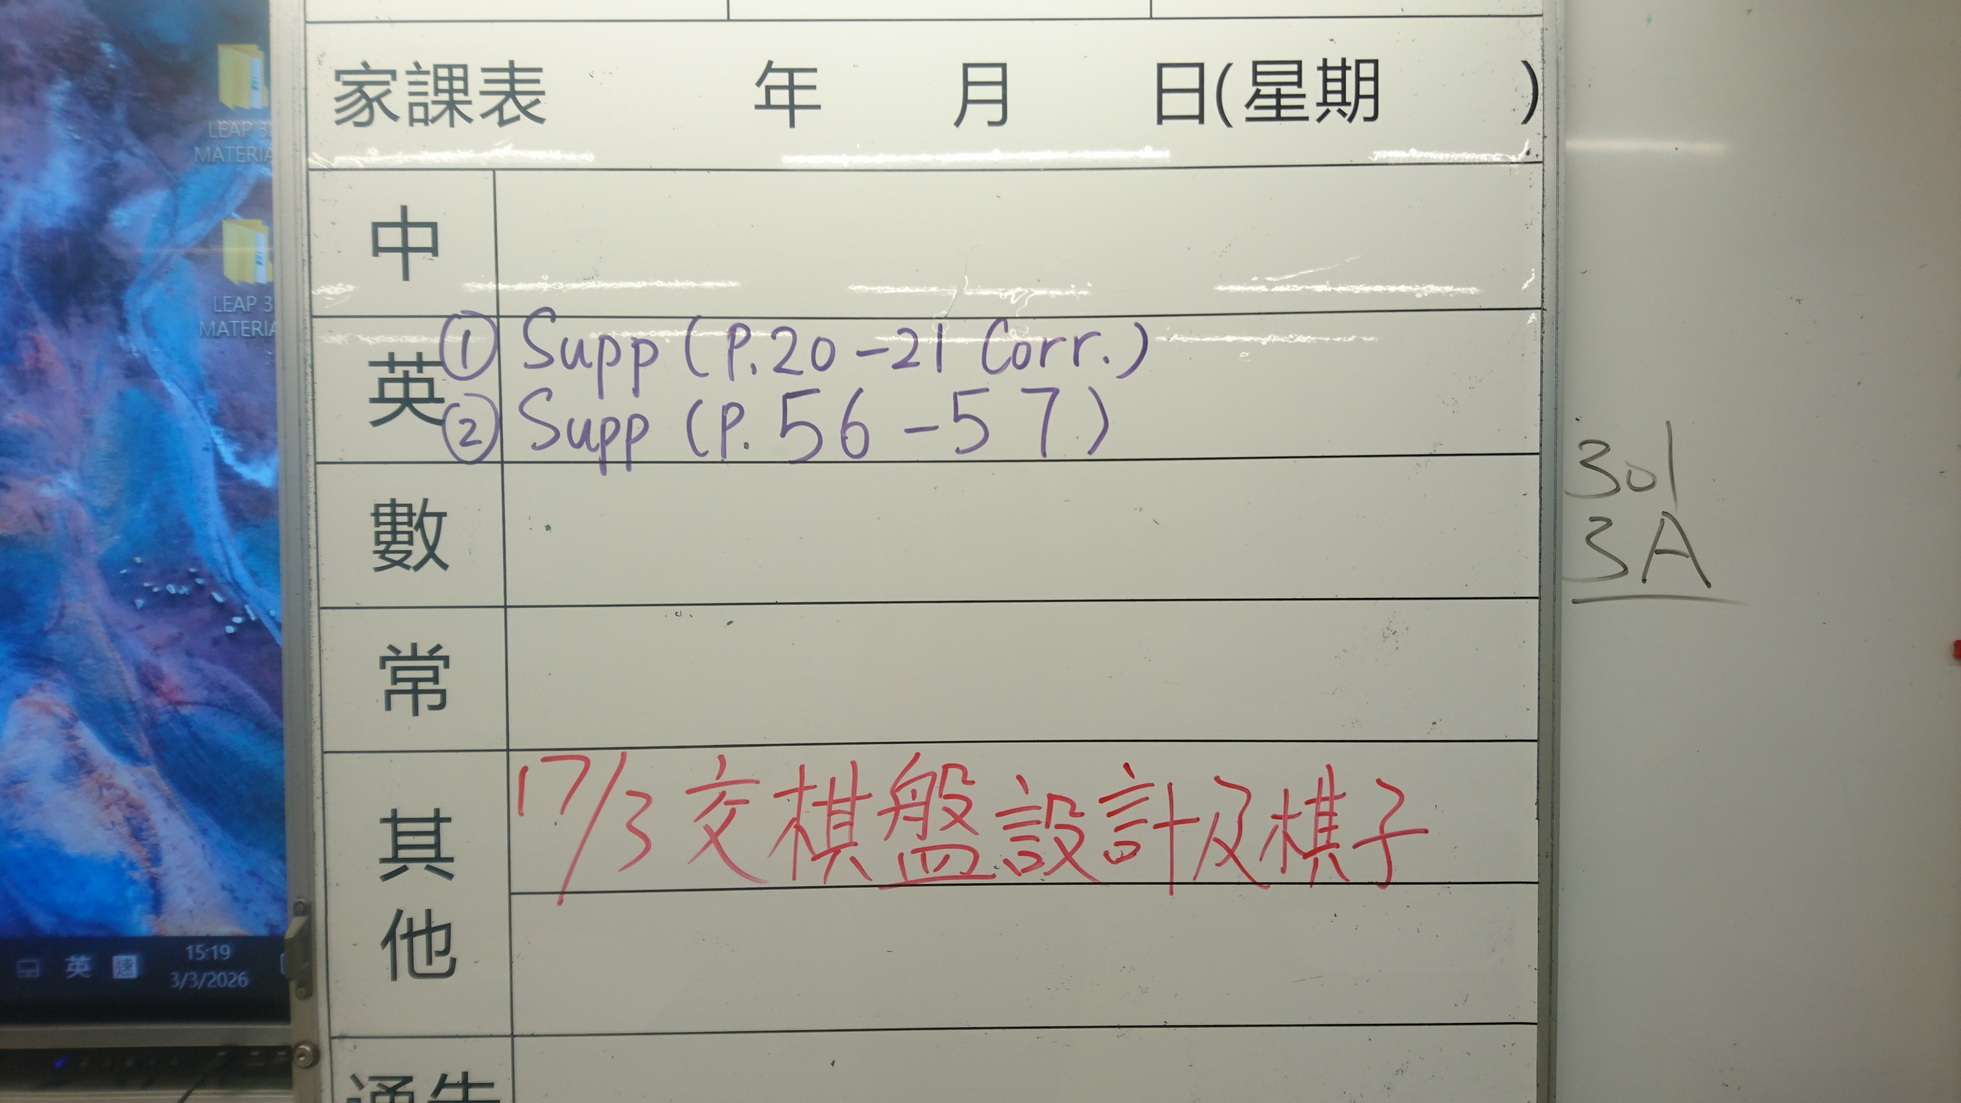 LEAP 3
MATERIA
LEAP 3
MATERIA
英
15:19
3/3/2026
家課表 年 月 日(星期 )
中
英 ① Supp (P.20-21 Corr.)
② Supp (P.56-57)
數
常
其他 17/3 交棋盤設計及棋子
通告
301
3A